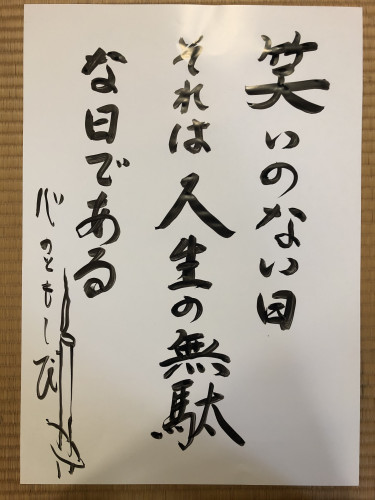 笑いのない日
それは人生の無駄
な日である
心のともしび